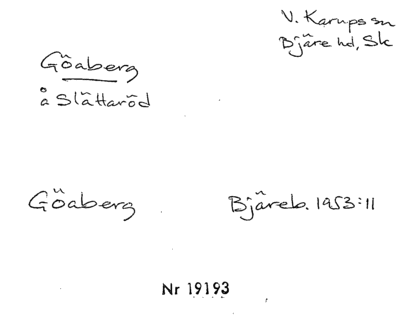 V. Karups sn
Bjäre hd, Sk
Göaberg
å Slättaröd
Göaberg
Bjäreb. 1953:11
Nr 19193